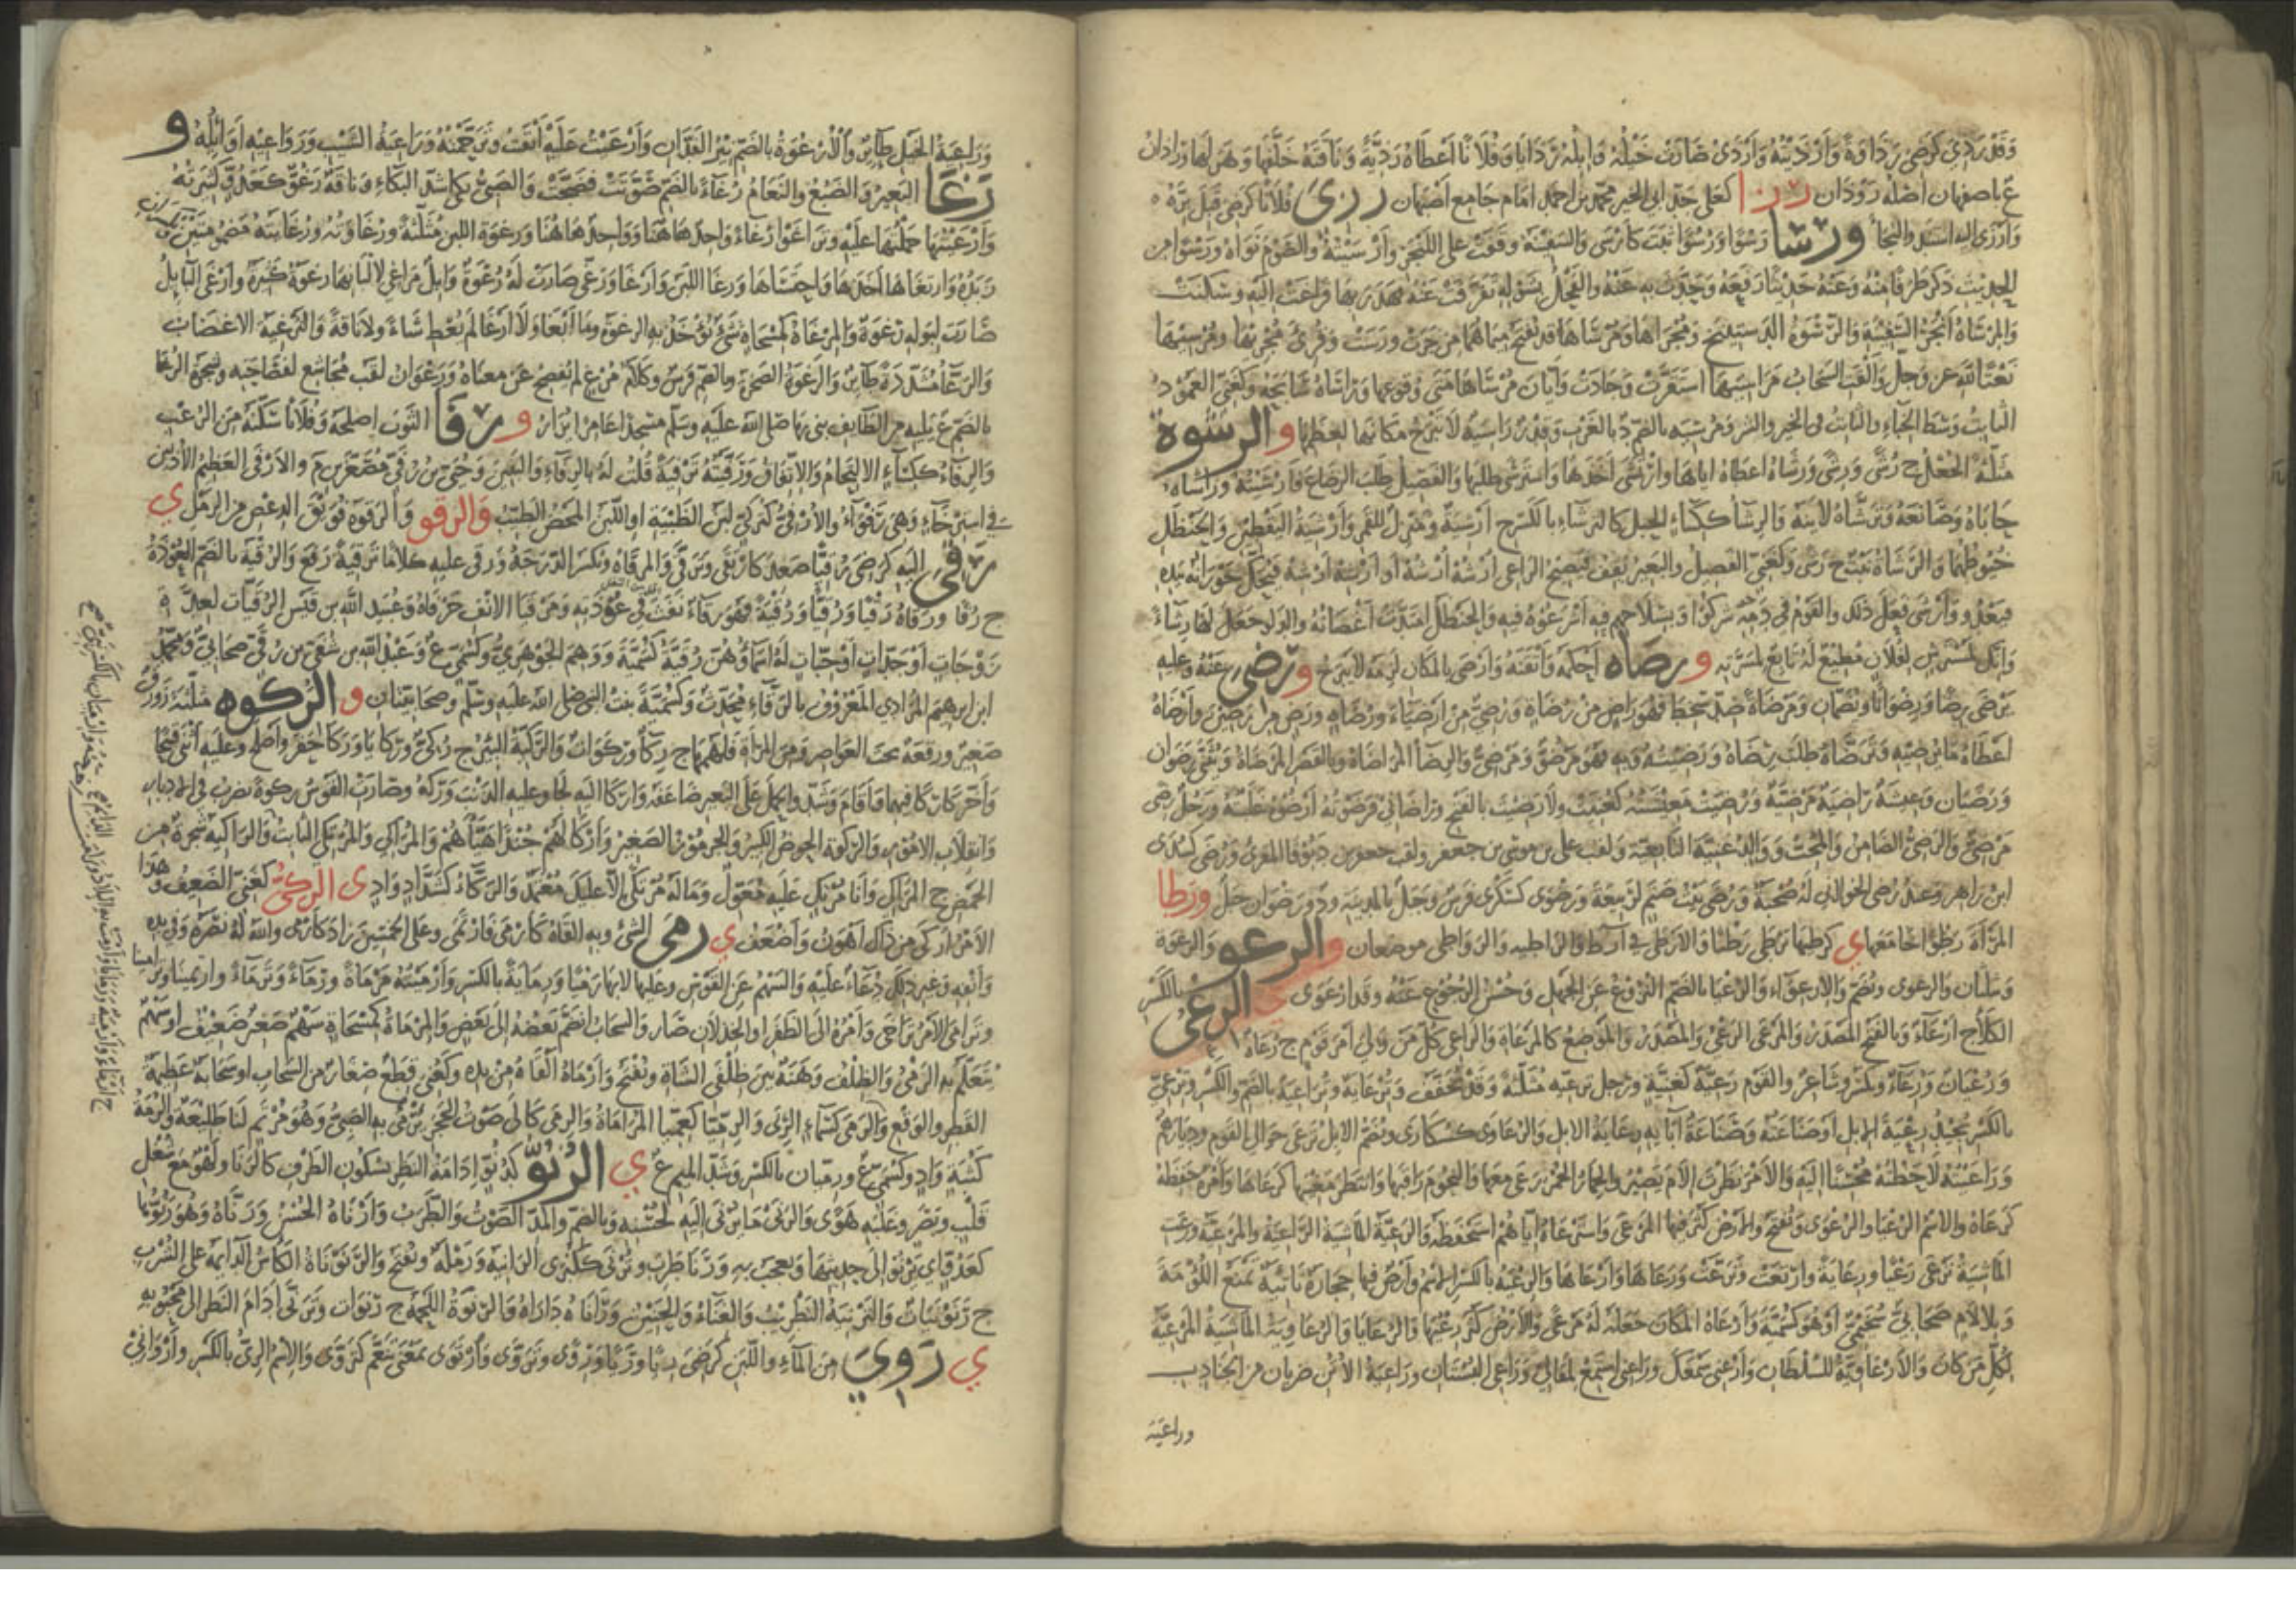 وقد ردي كرضي رداوة وأرديته وأردى صارت خيله وإبله رذايا وفلانا أعطاه رذية وناقة خلفها وهزلها ورذان
ع باصفهان اصله روذان رزا كعلى جد ابى الخير محمد بن احمد امام جامع اصبهان رزى فلانا كرضى قبل بره
وارزى اليه استند والتجأ ورسا رسوا ورسوا ثبت كارسى والسفينة وقفت على اللنجر وارسيته والصوم نواه ورسوا من
الحديث ذكر طرفا منه وعنه حديثا رفعه وحدث به عنه والفحل بشوله تفرقت عنه فهدر بها فراغت اليه وسكنت
والمرساة انجر السفينة والرسوة الدستينج ومجراها ومرساها قد تفتح ميماهما من جرت ورست وقرئ مجريها ومرسيها
نعتا لله عز وجل والقت السحاب مراسيها استقرت وجادت وايان مرساها متى وقوعها وراساه سابحه وكغنى العمود
الثابت وسط الخباء والثابت فى الخير والشر ومرسيه بالضم د بالمغرب وقدر راسية لا تبرح مكانها لعظمها والرشوة
مثلثة الجعل ج رشى ورشى ورشاه اعطاه اياها وارتشى اخذها واسترشى طلبها والفصيل طلب الرضاع فارشيته وراشاه
حاباه وصانعه وترشاه لاينه والرشاء ككساء الحبل كالترشاء بالكسر ج ارشية ومنزل للقمر وارشية اليقطين والحنظل
خيوطهما والرشاة نبت ج رشى وكغنى الفصيل والبعير يقف فيصيح الراعى ارشه ارشه او ارشيه ارشه فيحك خورانه بيده
فيعدو وارشى فعل ذلك والقوم فى دمه شركوا وبسلاحهم فيه اشرعوه فيه والحنظل امتدت اغصانه والدلو جعل لها رشاء
وانك لمسترش لفلان مطيع له تابع لمسرته ورصاه احكمه واتقنه وارصى بالمكان لزمه لا يبرح ورضى عنه وعليه
يرضى رضا ورضوانا وتضمان ومرضاة ضد سخط فهو راض من رضاة ورضى من ارضياء ورضاه ورض من رضين وارضاه
اعطاه ما يرضيه وترضاه طلب رضاه ورضيته وبه فهو مرضو ومرضى والرضاء المراضاة وبالقصر المرضاة وتثنى رضوان
ورضيان وعيشة راضية مرضية ورضيت معيشته كعنيت ولا رضيت بالفتح وراضانى فرضوته ارضوه غلبته ورجل رضى
مرضى والرضى الضامن والمحب ووالد غنية التابعية ولقب على بن موسى بن جعفر ولقب جعفر بن دبوقا المقرئ ورضى كسدى
ابن زاهر وعبد رضى الخولانى له صحبة ورضى بيت صنم لربيعة ورضوى كسكرى فرس وجبل بالمدينة وذو رضوان جبل ورطا
المرأة رطوا جامعها ي كرطيها يرطى رطيا والارطى فى ارط والراطيه والرواطى موضعان والرعو والرعوة
ويثلثان والرعوى وتضم والارعواء والرعيا بالضم النزوع عن الجهل وحسن الرجوع عنه وقد ارعوى ي الرعى بالكسر
الكلأ ج ارعاء وبالفتح المصدر والمرعى الرعى والمصدر والموضع كالمرعاة والراعى كل من ولى امر قوم ج رعاة
ورعيان ورعاء ويكسر وشاعر والقوم رعية كغنية ورجل ترعيه مثلثة وقد تخفف وترعاية وتراعية بالضم والكسر وترعى
بالكسر يجيد رعية الابل او صناعته وصناعة آبائه رعاية الابل والرعاوى كسكارى وتضم الابل ترعى حوالى القوم وديارهم
وراعيته لاحظته محسنا اليه والامر نظرت الام يصير والحمار الحمر رعى معها والنجوم راقبها وانتظر مغيبها كرعاها وامره حفظه
كرعاه والاسم الرعيا والرعوى وتفتح والارض كثر فيها المرعى واسترعاه اياهم استحفظه والرعية الماشية الراعية والمرعية ورعت
الماشية ترعى رعيا ورعاية وارتعت وترعت ورعاها وارعاها والرعية بالكسر الاسم وارض فيها حجارة ناتئة تمنع اللؤمة
وبلا لام صحابى سحيمى او هو كسمية وارعاه المكان جعله له مرعى والارض كثر رعيها والرعايا والرعاوية الماشية المرعية
لكل من كان والارعاوية للسلطان وارعنى سمعك وراعنى استمع لمقالى وراعى البستان وراعية الاتن ضربان من الجنادب
وراعية
وراعية الخيل طائر والارعوة بالضم نير الفدان وارعيت عليه ابقيت وترحمته وراعية الشيب ورواعيه اوائله و
رغا البعير والضبع والنعام رغاء بالضم صوتت فضجت والصبى بكى اشد البكاء وناقة رغو كعدو كثيرته
وارغيتها حملتها عليه وتراغوا رغاء واحد هاهنا وواحد هاهنا ورغوة اللبن مثلثة ورغاوته ورغايته مضمومتين
زبده وارتغاها اخذها واحتساها ورغا اللبن وارغا ورغى صارت له رغوة وابل مراغ لالبانها رغوة كثيرة وارغى البائل
صارت لبوله رغوة والمرغاة كمسحاة شئ تؤخذ به الرغوة وما اثغى ولا ارغا لم يعط شاة ولا ناقة والترغية الاغضاب
والرغاء مشددة طائر والرغوة الصخرة وبالضم فرس وكلام مرغ لم يفصح عن معناه ورغوان لقب مجاشع لفصاحته وشجرة الرغا
بالضم ع بليه من الطائف بنى بها صلى الله عليه وسلم مسجدا عامر ايزار و رفا الثوب اصلحه وفلانا سكنه من الرعب
والرفاء ككساء الالتحام والاتفاق ورفيته ترفية قلت له بالرفاء والبنين وحيى بن رفى مصغرين م والارفى العظيم الاذنين
فى استرخاء وهى رفواء والارفى كتركى لبن الظبية او اللبن المحض الطيب والرقو والرقوة فويق الدعص من الرمل ي
رقى اليه كرضى رقيا صعد كارتقى وترقى والمرقاة وتكسر الدرجة ورقى عليه كلاما ترقية رفع والرقية بالضم العوذة
ج رقا ورقاه رقيا ورقيا ورقية فهو رقاء نفث فى عوذته ومرقيا الانف حرفاه وعبيد الله بن قيس الرقيات لعدة
زوجات او جدات او حبات له اسماؤهن رقية كسمية ووهم الجوهرى وكسمى ع وعبد الله بن شفى بن رقى صحابى ومحمد
ابن ابرهيم المرادى المعروف بالرقاء محدث وكسمية بنت النبى صلى الله عليه وسلم وصحابيتان و الركوه مثلثة زورق
صغير ورقعة تحت العواصر ومن المرأة فلهمها ج ركاء وركوات والركية البئر ج ركى وركايا وركا حفر واصلح وعليه اثنى قبيحا
واخر كاركا فيهما واقام وشد والحمل على البعير ضاعفه واركا اليه لجا وعليه الذنب وركه وصارت القوس ركوة تضرب فى الادبار
وانقلاب الامور والركوة الحوض الكبير والجرموز الصغير واركا لهم جندا هيأه لهم والمراكى والمرتكى الثابت والراكية شجرة من
الحمض ج المراكى وانا مرتك عليه معول وماله مرتكى الا عليك معتمد والركاء كشداد واد ى الركى كغنى الضعيف وهذا
الامر اركى من ذاك اهون واضعف ي رمى الشئ وبه القاه كارمى فارتمى وعلى الخمسين زاد كارمى والله له نصره وفى يده
وانفه وغير ذلك دعاء عليه والسهم عن القوس وعليها لا بها رميا ورماية بالكسر وارميته مرماة ورماء وترماء وارتمينا
وترامى الامر تراخى وامره الى الظفر او الخذلان صار والسحاب انضم بعضه الى بعض والمرماة كمسحاة سهم صغير ضعيف او سهم
يتعلم به الرمى والظلف وهنة بين ظلفى الشاة وتفتح وارماه القاه من يده وكغنى قطع صغار من السحاب او سحابة عظيمة
القطر والوقع والرمى كسماء الربى والرميا كعميا المراماة والرمى كالى صوت الحجر يرمى به الصبى وهو مرتم لنا طليعة والرمية
كسية واد وكسمى ع ورميان بالكسر وشد الميم ع ي الرنو كدنو ادامة النظر بسكون الطرف كالرنا ولهو مع شغل
قلب وبصر وغلبة هوى والرنى ما يرنى اليه لحسنه وبالضم والمد الصوت والطرب وارناه الحسن ورناه وهو رنوها
كعدو اى يرنو الى حديثها ويعجب به ورنا طرب وترنى كلبنى الزانية ورملة وتفتح والرنوناة الكاس الدائمة على الشرب
ج رنونيات والترنية التطريب والغناء والحنين ورناه داراه والرنوة اللحمة ج رنوات وترنى ادام النظر الى محبوبه
ي روى من الماء واللبن كرضى ريا وريا وروى وتروى وارتوى بمعنى تنعم كتروى والاسم الرى بالكسر واروانى